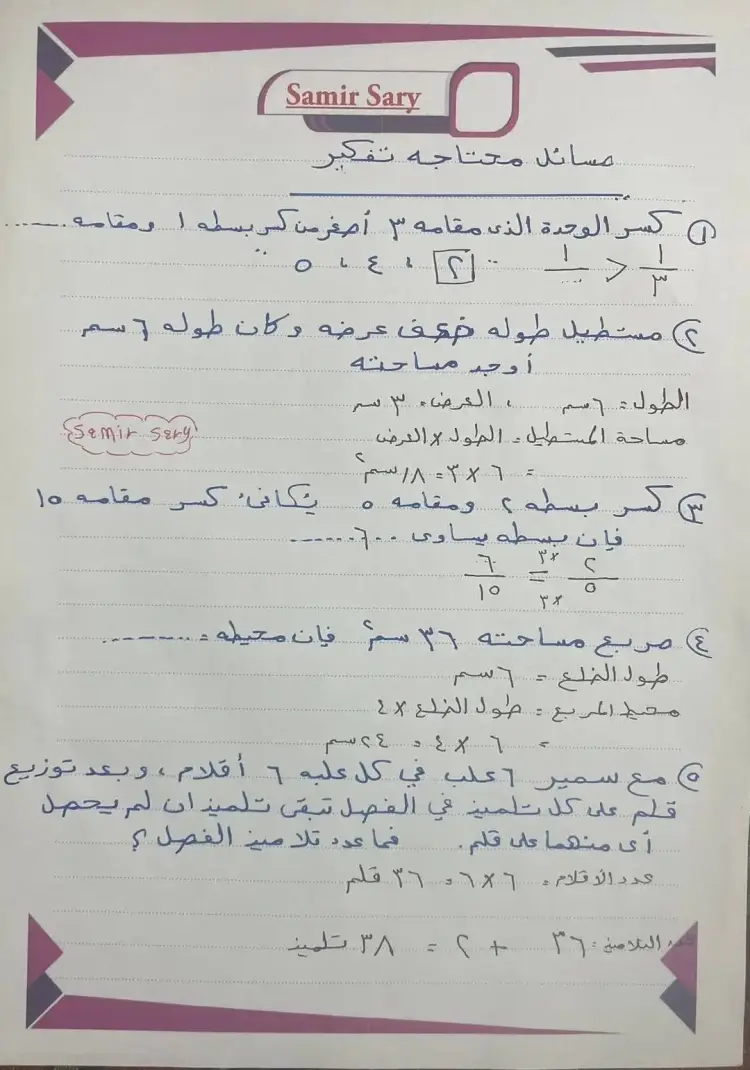 Samir Sary
مسائل محتاجه تفكير
١ كسر الوحدة الذى مقامه ٣ أصغر من كسر بسطه ١ ومقامه ......
١/٣ < ١/... ٢ ، ٤ ، ٥
٢ مستطيل طوله ضعف عرضه وكان طوله ٦ سم
أوجد مساحته
الطول = ٦ سم ، العرض = ٣ سم
Samir Sary
مساحة المستطيل = الطول × العرض
= ٦ × ٣ = ١٨ سم٢
٣ كسر بسطه ٢ ومقامه ٥ يُكافئ كسر مقامه ١٥
فإن بسطه يساوى ..٦......
٢/٥ =×٣ =×٣ ٦/١٥
٤ مربع مساحته ٣٦ سم٢ فإن محيطه = ........
طول الضلع = ٦ سم
محيط المربع = طول الضلع × ٤
= ٦ × ٤ = ٢٤ سم
٥ مع سمير ٦ علب في كل علبه ٦ أقلام ، وبعد توزيع
قلم على كل تلميذ في الفصل تبقى تلميذان لم يحصل
أى منهما على قلم . فما عدد تلاميذ الفصل ؟
عدد الأقلام = ٦ × ٦ = ٣٦ قلم
عدد التلاميذ = ٣٦ + ٢ = ٣٨ تلميذ